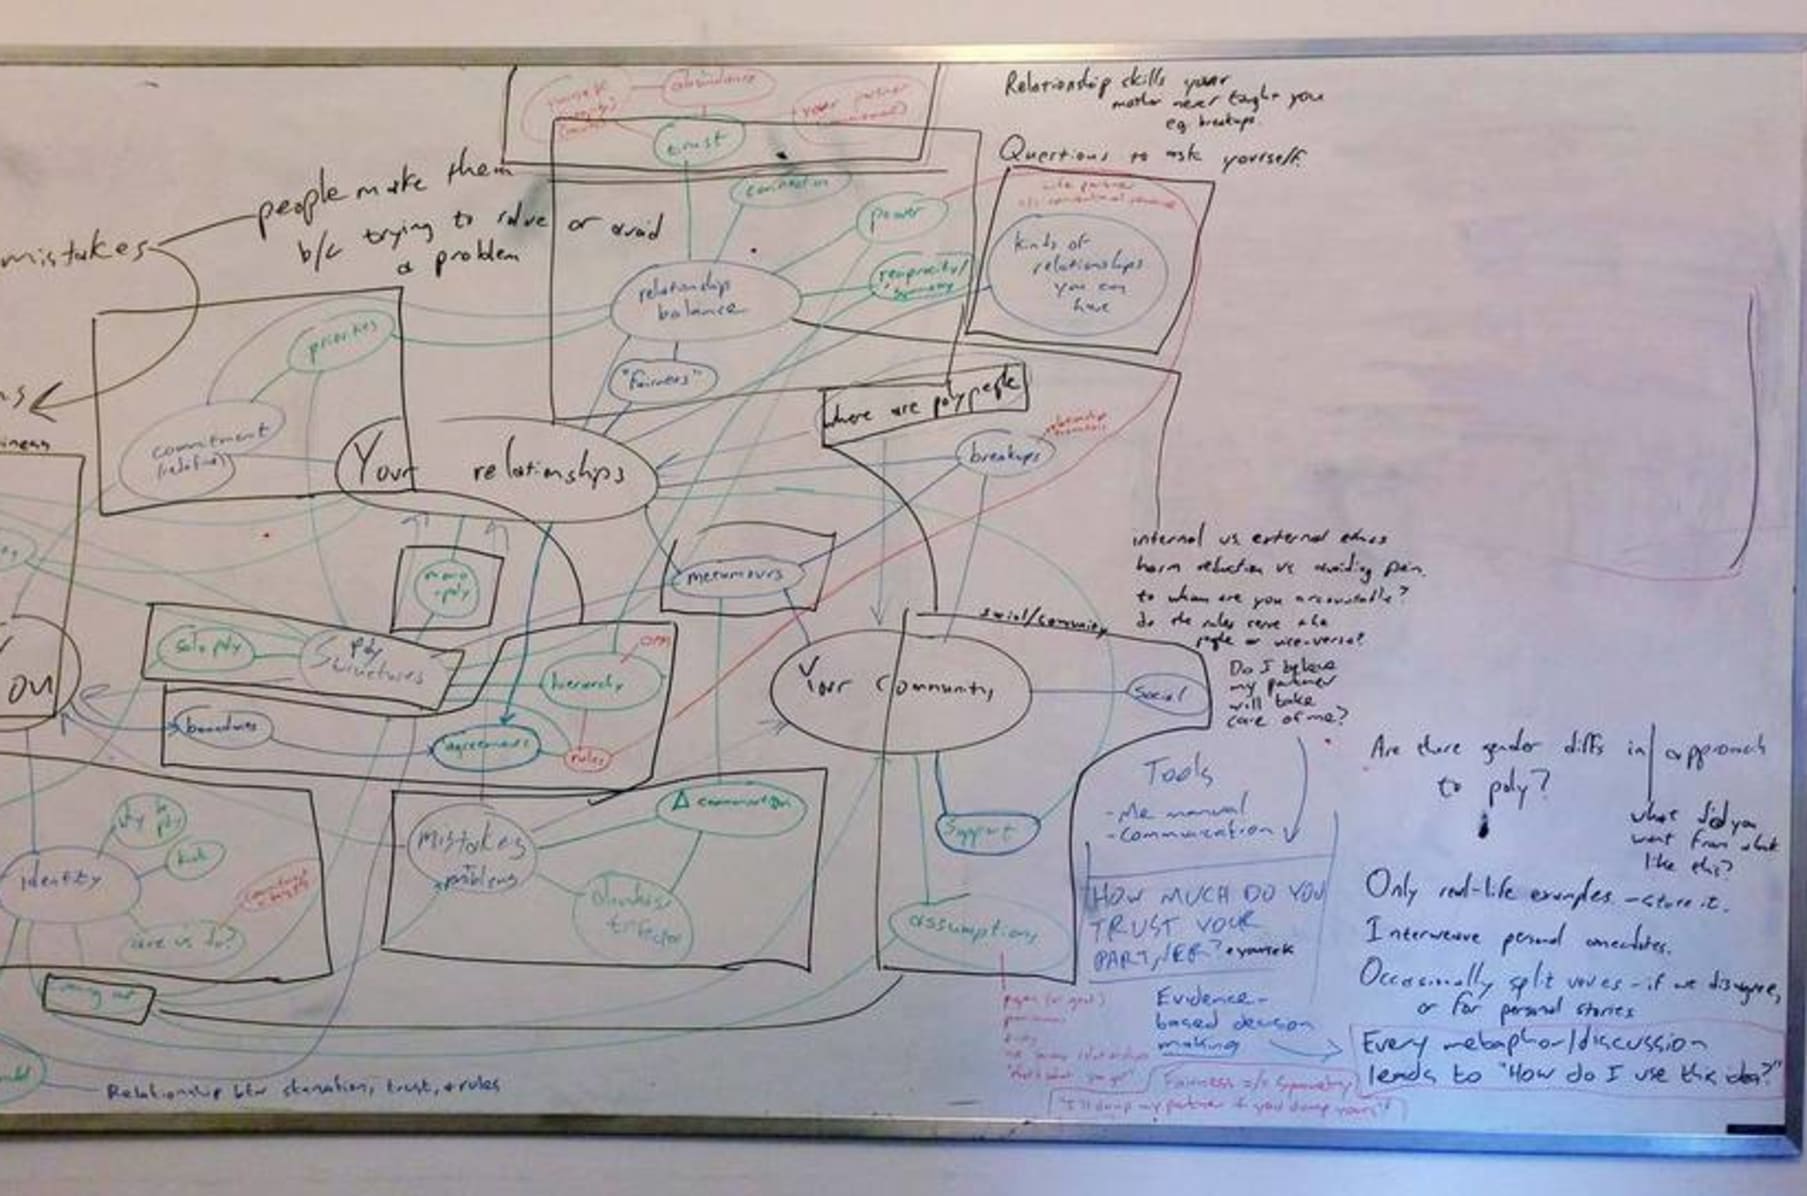 abundance
your partner
trust
Relationship skills your
mother never taught you
eg breakups
Questions to ask yourself.
people make them
b/c trying to solve or avoid
a problem
mistakes
connection
power
reciprocity/
symmetry
relationship
balance
"Fairness"
kinds of
relationships
you can
have
priorities
commitment
(redefine)
Your relationships
where are poly people
breakups
relationship
mono
-poly
metamours
internal vs. external ethics
harm reduction vs. avoiding pain.
to whom are you accountable?
do the rules serve the
people or vice-versa?
Do I believe
my partner
will take
care of me?
social/community
solo poly
poly
structures
hierarchy
boundaries
agreements
rules
Your Community
Social
Tools
- Me manual
- Communication
Are there gender diffs in approach
to poly?
what did you
want from a book
like this?
why be
poly
identity
are vs do?
Mistakes
problems
Δ communication
Support
assumptions
HOW MUCH DO YOU
TRUST YOUR
PARTNER? + yourself
Evidence-
based decision
making
Only real-life examples. - store it.
Interweave personal anecdotes.
Occasionally split voices - if we disagree,
or for personal stories
Every metaphor/discussion
leads to "How do I use this idea?"
coming out
Relationship btw starvation, trust, + rules
Fairness =/= Symmetry
"I'll dump my partner if you dump yours"